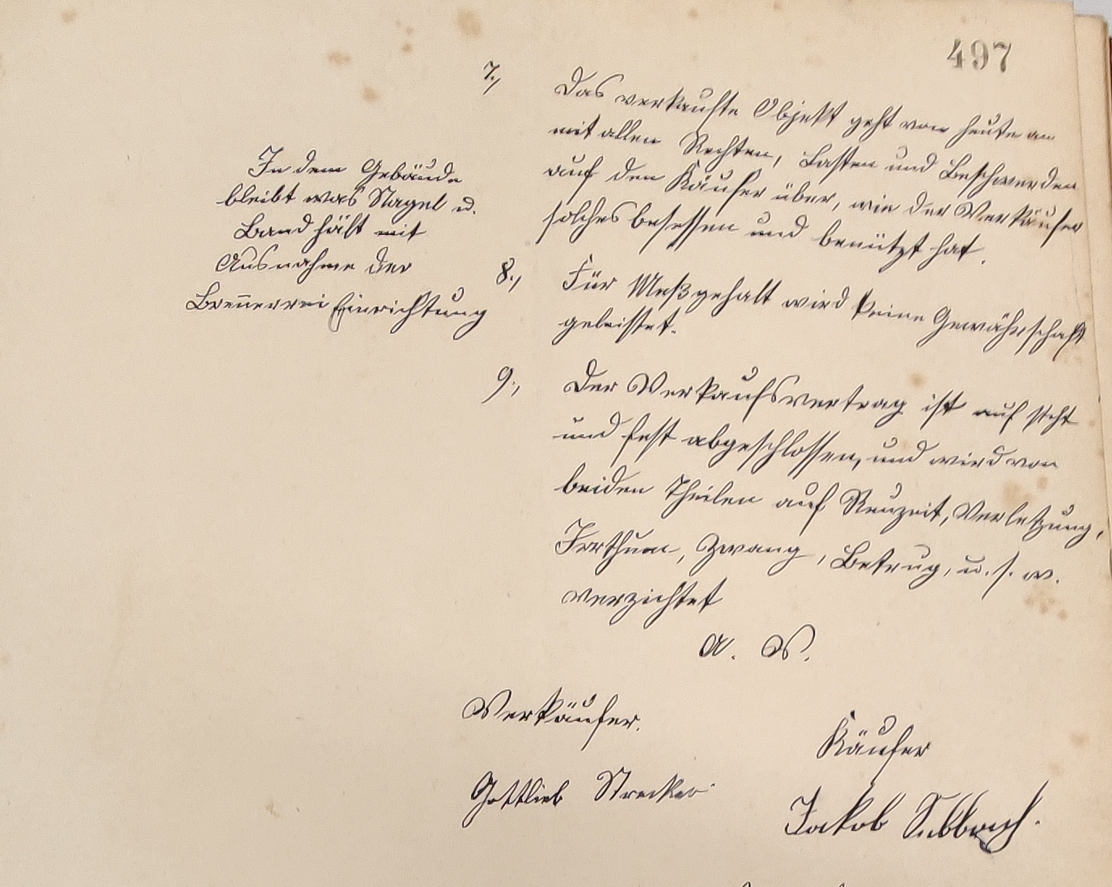 497
7.,
Das verkaufte Objekt geht von heute an
mit allen Rechten, Lasten und Beschwerden
auf den Käufer über, wie der Verkäufer
solches besessen und benützt hat.
In dem Gebäude
bleibt was Nagel u.
Band hält mit
Ausnahme der
Breñerrei Einrichtung
8.,
Für Meßgehalt wird keine Gewährschaft
geleistet.
9.,
Der Verkaufsvertrag ist auf steht
und fest abgeschlossen, und wird von
beiden Theilen auf Reuzeit, Verletzung,
Irrthum, Zwang, Betrug, u. s. w.
verzichtet
A. W.
Verkäufer.
Käufer
Gottlieb Strecker
Jakob